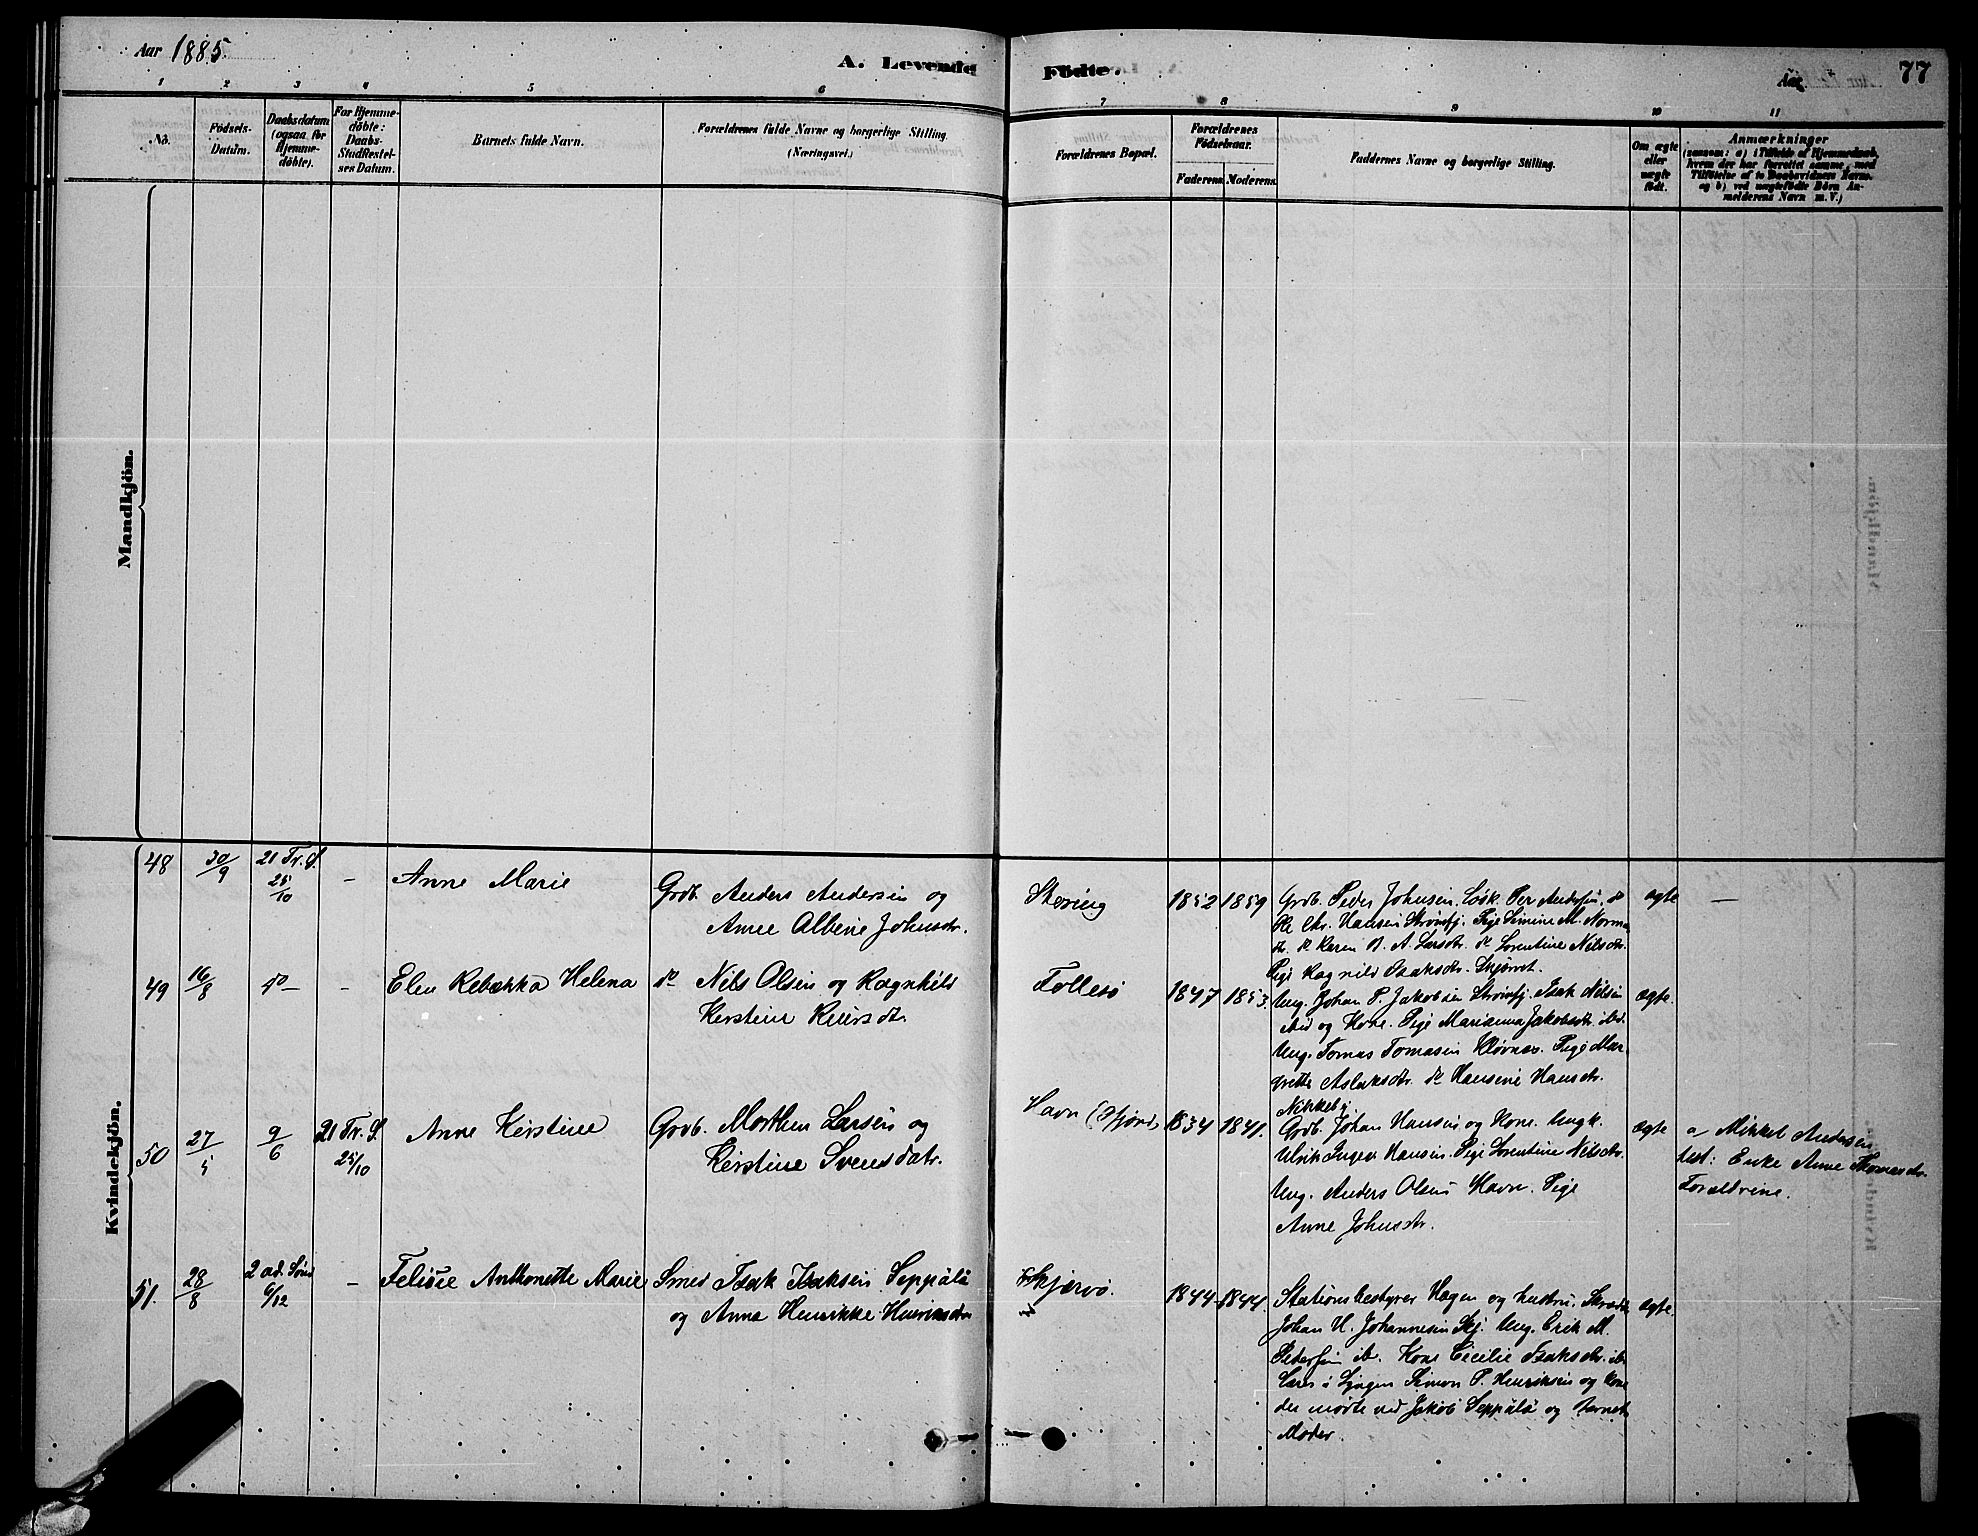 Aar 1885.
A. Levende
Födte.
Aar
77
1
2
3
4
5
6
7
8
9
10
11
No.
Födsels-
Datum.
Daabsdatum
(ogsaa for
Hjemme-
döbte).
For Hjemme-
döbte:
Daabs-
Stadfestel-
ses Datum.
Barnets fulde Navn.
Forældrenes fulde Navne og borgerlige Stilling.
(Næringsvei.)
Forældrenes Bopæl.
Forældrenes
Födselsaar.
Faderens.
Moderens.
Faddernes Navne og borgerlige Stilling.
Om ægte
eller
uægte
födt.
Anmærkninger
(saasom: a) i Tilfælde af Hjemmedaab,
hvem der har forrettet samme, med
Tilföielse af to Daabsvidners Navne,
og b) ved uægtefödte Börn An-
melderens Navn m. V.)
Mandkjön.
Kvindekjön.
48
30/9
21 Tr. S.
25/10
-
Anne Marie
Grdb. Anders Andersen og
Anne Albine Johnsdtr.
1852
1859
Grdb. Peder Johnsen. Løsk. Per Andersen. do
Ole Chr. Hansen Strømfj. Pige Simine M. Norma
dtr. do Karen B. A. Larsdtr. do Lorentine Nilsdtr.
Pige Ragnild Isaksdtr. Skjørvet.
ægte
-
49
16/8
do -
-
Elen Rebekka Helena
do Nils Olsen og Ragnhild
Kerstine Reiersdtr.
Follesø
1847
1853.
Ung. Johan P. Jakobsen Strømfj. Isak Nilsen
ibid og Kone. Pige Marianna Jakobsdtr. ibd.
Ung. Tomas Tomasen Kløvnes. Pige Mar-
grette Aslaksdtr. do Hansine Hansdtr.
Nikkeby.
ægte.
50
27/5
9/6
21 Tr. S.
25/10
Anne Kerstine
Grdb. Morthen Larsen og
Kerstine Svensdatr.
Havn
1834
1841.
Grdb. Johan Hansen og Kone. Ungk.
Ulrik Inger Hansen. Pige Lorentine Nilsdtr.
Ung. Anders Olsen Havn. Pige
Anne Johnsdtr.
ægte
a, Mikkel Andersen
test: Enke Anne Thomasdtr.
Foreldrene.
51.
28/8
2 ad. Sønd
6/12
-
Felisie Anthonette Marie
Smed Isak Isaksen Seppälä
og Anna Henrikke Henriksdtr
Skjærvø.
1844
1844
Stationsbestyrer Hagen og hustru. Skræd.
Johan H. Johannesen Skj. Ung. Erik M.
Pedersen ib. Kone Cecilie Isaksdtr. ib.
Lars i Lyngen Simon P. Henriksen og Kone
der mødte ved Jakob Seppälä og Barnets
Moder.
ægte.